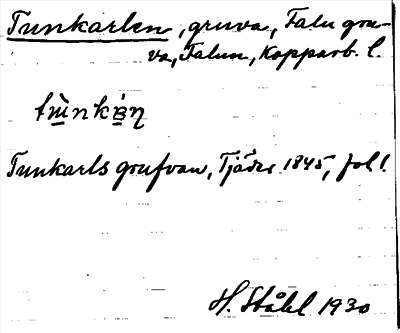 Tunkarlen, gruva, Falu gru-
va, Falun, Kopparb. l.
Tunkarls grufvan, Tjäder 1845, fol 1.
H. Ståhl 1930